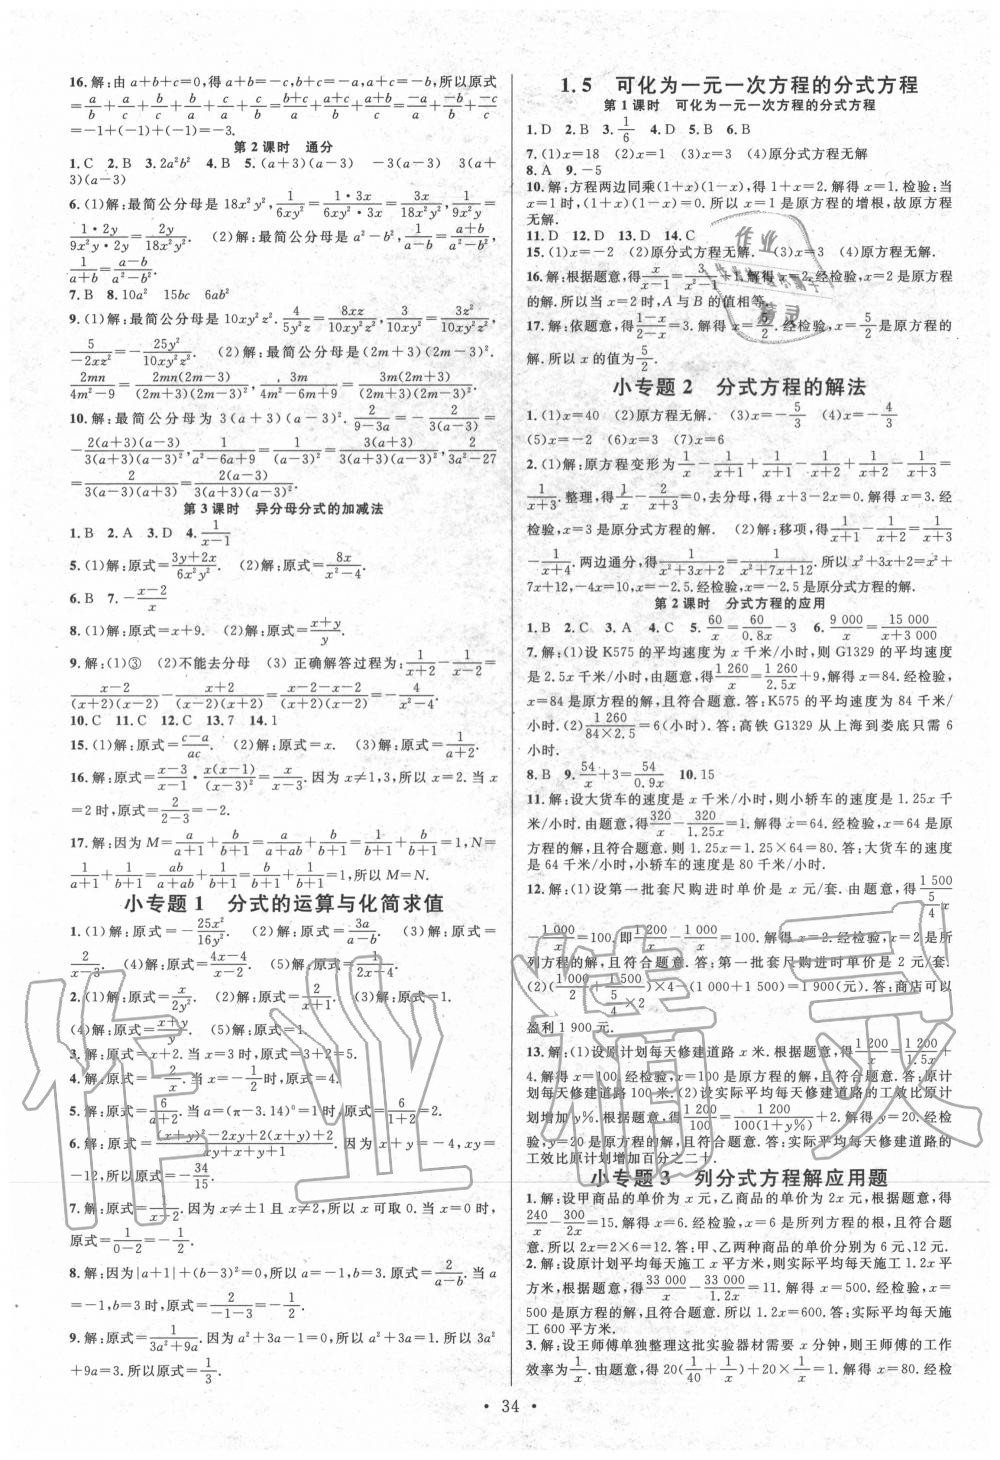 16.解:由a+b+c=0,得a+b=-c,b+c=-a,a+c=-b,所以原式
=a/b+a/c+b/c+b/a+c/a+c/b=(b+c)/a+(a+c)/b+(a+b)/c=-a/a+-b/b+-c/c
=-1+(-1)+(-1)=-3.
第2课时 通分
1.C 2.B 3.2a²b² 4.B 5.(a+3)(a-3) -3(a-3) (a+
3)(a-3)
6.(1)解:最简公分母是18x²y²,1/6xy²=1·3x/6xy²·3x=3x/18x²y²,1/9x²y=
1·2y/9x²y·2y=2y/18x²y². (2)解:最简公分母是a²-b²,1/(a-b)=(a+b)/(a²-b²),
1/(a+b)=(a-b)/(a²-b²).
7.B 8.10a² 15bc 6ab²
9.(1)解:最简公分母是10xy²z².4/5y²z=8xz/10xy²z²,3/10xy²=3z²/10xy²z²,
5/-2xz²=-25y²/10xy²z². (2)解:最简公分母是(2m+3)(2m-3)².
2mn/(4m²-9)=2mn(2m-3)/(2m+3)(2m-3)²,3m/(4m²-6m+9)=3m(2m+3)/(2m+3)(2m-3)².
10.解:最简公分母为3(a+3)(a-3)².2/(9-3a)=
-2(a+3)(a-3)/3(a+3)(a-3)²,(a-1)/(a²-6a+9)=3(a+3)(a-1)/3(a+3)(a-3)²,2/(3a²-27)=
2(a-3)/3(a-3)(a-3)².
第3课时 异分母分式的加减法
1.B 2.A 3.D 4.1/(x-1)
5.(1)解:原式=(3y+2x)/6x²y². (2)解:原式=8x/(x²-4).
6.B 7.-(x-2)/x
8.(1)解:原式=x+9. (2)解:原式=(x+y)/y.
9.解:(1)③ (2)不能去分母 (3)正确解答过程为:1/(x+2)-1/(x-2)
=(x-2)/(x+2)(x-2)-(x+2)/(x+2)(x-2)=(x-2-x-2)/(x+2)(x-2)=-4/(x²-4).
10.C 11.C 12.C 13.7 14.1
15.(1)解:原式=(c-a)/ac. (2)解:原式=x. (3)解:原式=1/(a+2).
16.解:原式=(x-3)/(x-1)·x(x-1)/(x-3)²=x/(x-3).因为x≠1,3,所以x=2.当x
=2时,原式=2/(2-3)=-2.
17.解:因为M=a/(a+1)+b/(b+1)=a/(a+ab)+b/(b+ab)=1/(b+1)+1/(a+1),N=
1/(a+1)+1/(b+1)=ab/(a+ab)+ab/(b+ab)=b/(b+1)+a/(a+1),所以M=N.
小专题1 分式的运算与化简求值
1.(1)解:原式=-25x²/16y². (2)解:原式=3a/(a-b). (3)解:原式=
2/(x-3). (4)解:原式=(4x-4)/(x-2). (5)解:原式=1/(2x-4).
2.(1)解:原式=x/2y². (2)解:原式=2/(x+1). (3)解:原式=1.
(4)解:原式=(x+y)/y. (5)解:原式=1.
3.解:原式=x+2.当x=3时,原式=3+2=5.
4.解:原式=2/x.当x=1/2时,原式=4.
5.解:原式=6/(a+2).当a=(π-3.14)⁰=1时,原式=6/(1+2)=2.
6.解:原式=((x+y)²-2xy+2(x+y)+2)/(xy+x+y+1).因为x+y=-4,xy=
-12,所以原式=-34/15.
7.解:原式=1/(x-2).因为x≠±1且x≠2,所以x可取0.当x=0时,
原式=1/(0-2)=-1/2.
8.解:因为|a+1|+(b-3)²=0,所以a=-1,b=3.原式=2/(a-b).当a
=-1,b=3时,原式=2/(-1-3)=-1/2.
9.解:原式=1/(3a²+9a).因为a²+3a-1=0,所以a²+3a=1,所以3a²
+9a=3,所以原式=1/3.
1.5 可化为一元一次方程的分式方程
第1课时 可化为一元一次方程的分式方程
1.D 2.B 3.1/6 4.D 5.B 6.B
7.(1)x=18 (2)x=1 (3)x=3 (4)原分式方程无解
8.A 9.-5
10.解:方程两边同乘(1+x)(1-x),得1+x=2.解得x=1.检验:当
x=1时,(1+x)(1-x)=0.所以x=1是原方程的增根,故原方程
无解.
11.D 12.D 13.D 14.C
15.(1)x=-2 (2)原分式方程无解. (3)x=3 (4)原方程无解.
16.解:根据题意,得x/(x-1)=3/(x²-1)+1.解得x=2.经检验,x=2是原方程
的解.所以当x=2时,A与B的值相等.
17.解:依题意,得(1-x)/(2-x)=3.解得x=5/2.经检验,x=5/2是原方程的
解.所以x的值为5/2.
小专题2 分式方程的解法
1.(1)x=40 (2)原方程无解. (3)x=-5/3 (4)x=-4/3
(5)x=-2 (6)x=3 (7)x=6
2.(1)解:原方程变形为1/x-1/(x+1)+1/(x+1)-1/(x+2)+1/(x+2)-1/(x+3)=
1/(x+3).整理,得1/x-2/(x+3)=0.去分母,得x+3-2x=0.解得x=3.经
检验,x=3是原分式方程的解. (2)解:移项,得1/(x+1)-1/(x+2)=1/(x+3)-
1/(x+4).两边通分,得1/(x²+3x+2)=1/(x²+7x+12).所以x²+3x+2=x²+
7x+12,-4x=10,x=-2.5.经检验,x=-2.5是原分式方程的解.
第2课时 分式方程的应用
1.B 2.C 3.A 4.C 5.60/x=60/0.8x-3 6.9 000/x=15 000/(x+3 000)
7.解:(1)设K575的平均速度为x千米/小时,则G1329的平均速
度是2.5x千米/小时,由题意,得1 260/x=1 260/2.5x+9,解得x=84.经检验,
x=84是原方程的解,且符合题意.答:K575的平均速度为84千米/
小时.(2)1 260/84×2.5=6(小时).答:高铁G1329从上海到娄底只需6
小时.
8.B 9.54/x+3=54/0.9x 10.15
11.解:设大货车的速度是x千米/小时,则小轿车的速度是1.25x千
米/小时.由题意,得320/x-320/1.25x=1.解得x=64.经检验,x=64是原
方程的解,且符合题意.则1.25x=1.25×64=80.答:大货车的速度
是64千米/小时,小轿车的速度是80千米/小时.
12.解:(1)设第一批套尺购进时单价是x元/套.由题意,得1 500/(5/4)x
-1 000/x=100.即1 200/x-1 000/x=100.解得x=2.经检验,x=2是所
列方程的解,且符合题意.答:第一批套尺购进时单价是2元/套.
(2)(1 000/2+1 500/(5/4×2))×4-(1 000+1 500)=1 900(元).答:商店可以
盈利1 900元.
13.解:(1)设原计划每天修建道路x米.根据题意,得1 200/x=1 200/1.5x+
4.解得x=100.经检验,x=100是原方程的解,且符合题意.答:原计
划每天修建道路100米.(2)设实际平均每天修建道路的工效比原计
划增加y%.根据题意,得1 200/100=1 200/100(1+y%)+2.解得y=20.经检验,
y=20是原方程的解,且符合题意.答:实际平均每天修建道路的
工效比原计划增加百分之二十.
小专题3 列分式方程解应用题
1.解:设甲商品的单价为x元,乙商品的单价为2x元,根据题意,得
240/x-300/2x=15.解得x=6.经检验,x=6是所列方程的根,且符合题
意.所以2x=2×6=12.答:甲、乙两种商品的单价分别为6元、12元.
2.解:设原计划平均每天施工x平方米,则实际平均每天施工1.2x平
方米,根据题意,得33 000/x-33 000/1.2x=11.解得x=500.经检验,x=
500是原方程的解,且符合题意.所以1.2x=600.答:实际平均每天施
工600平方米.
3.解:设王师傅单独整理这批实验器材需要x分钟,则王师傅的工作
效率为1/x.由题意,得20(1/40+1/x)+20/x=1.解得x=80.经检
·34·
作业精灵